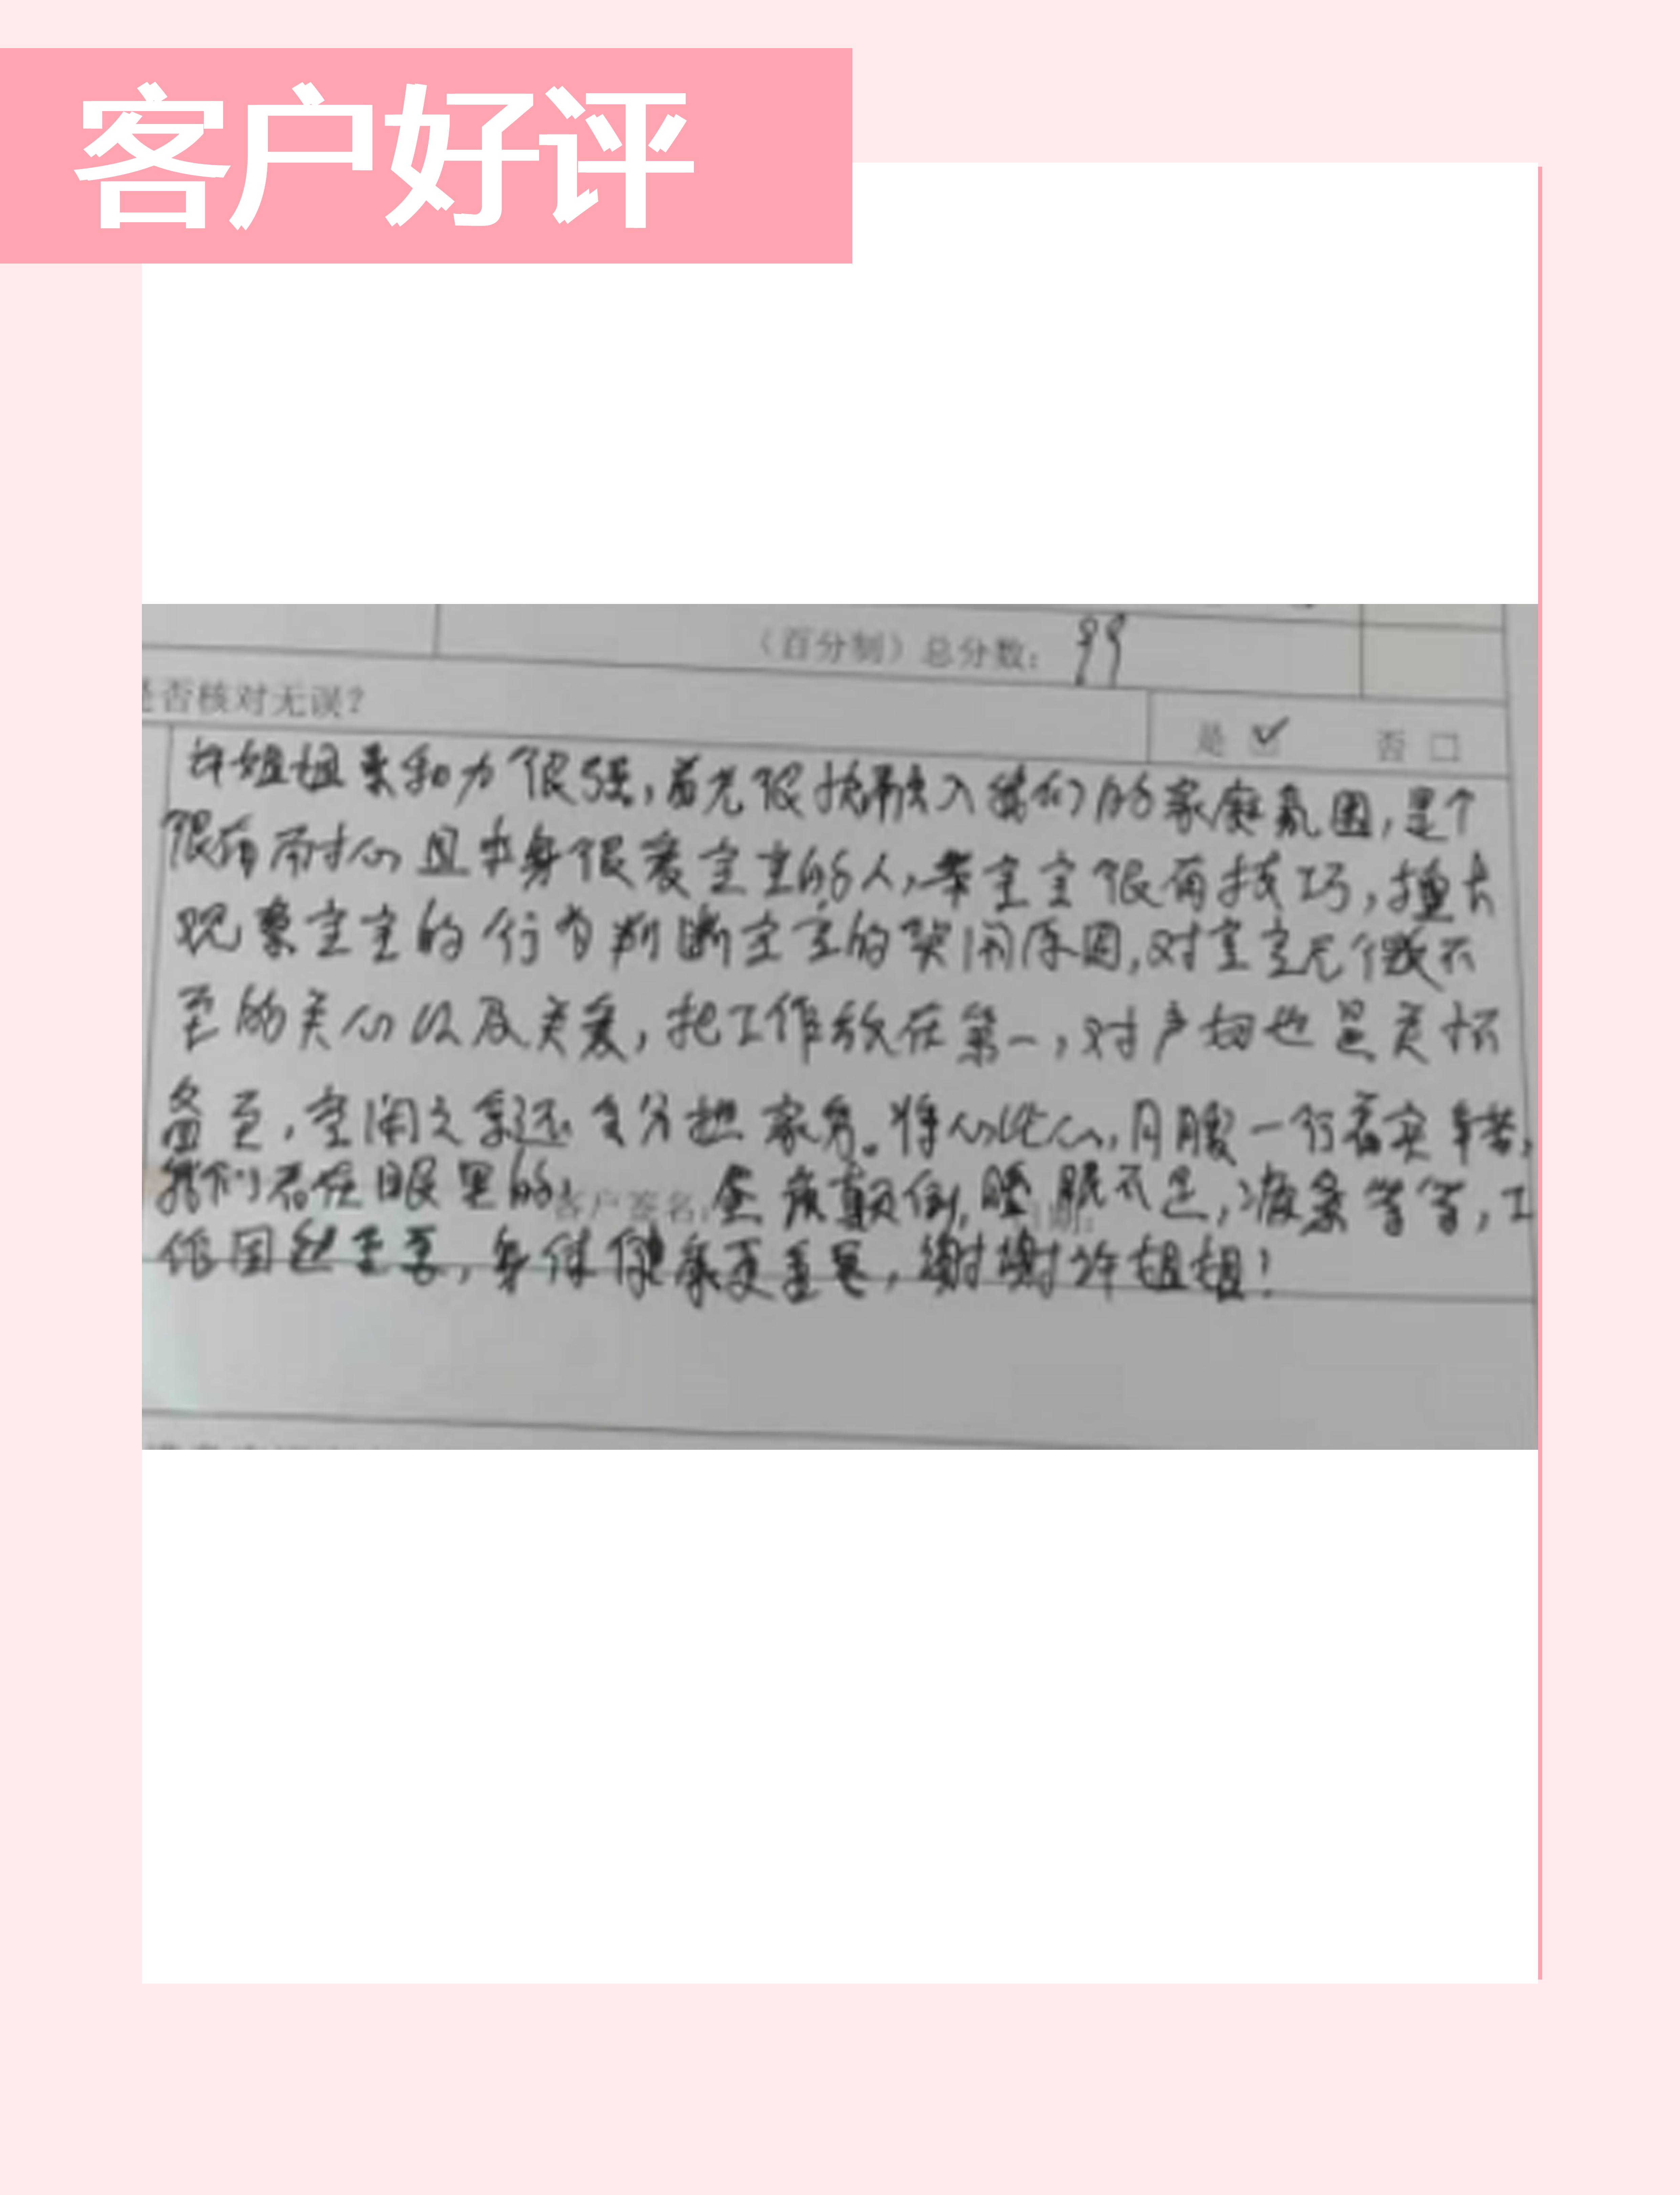 客户好评
（百分制）总分数：99
是否核对无误？
是 ☑ 否 □
许姐姐亲和力很强，首先很快融入我们的家庭氛围，是个
很有耐心且本身很爱宝宝的人，带宝宝很有技巧，擅长
观察宝宝的行为判断宝宝的哭闹原因，对宝宝无微不
至的关心以及关爱，把工作放在第一，对产妇也是关怀
备至，空闲之余还会分担家务。将心比心，月嫂一行着实辛苦，
我们看在眼里的，昼夜颠倒，睡眠不足，疲惫等等，工
客户签名： 日期：
作固然重要，身体健康更重要，谢谢许姐姐！